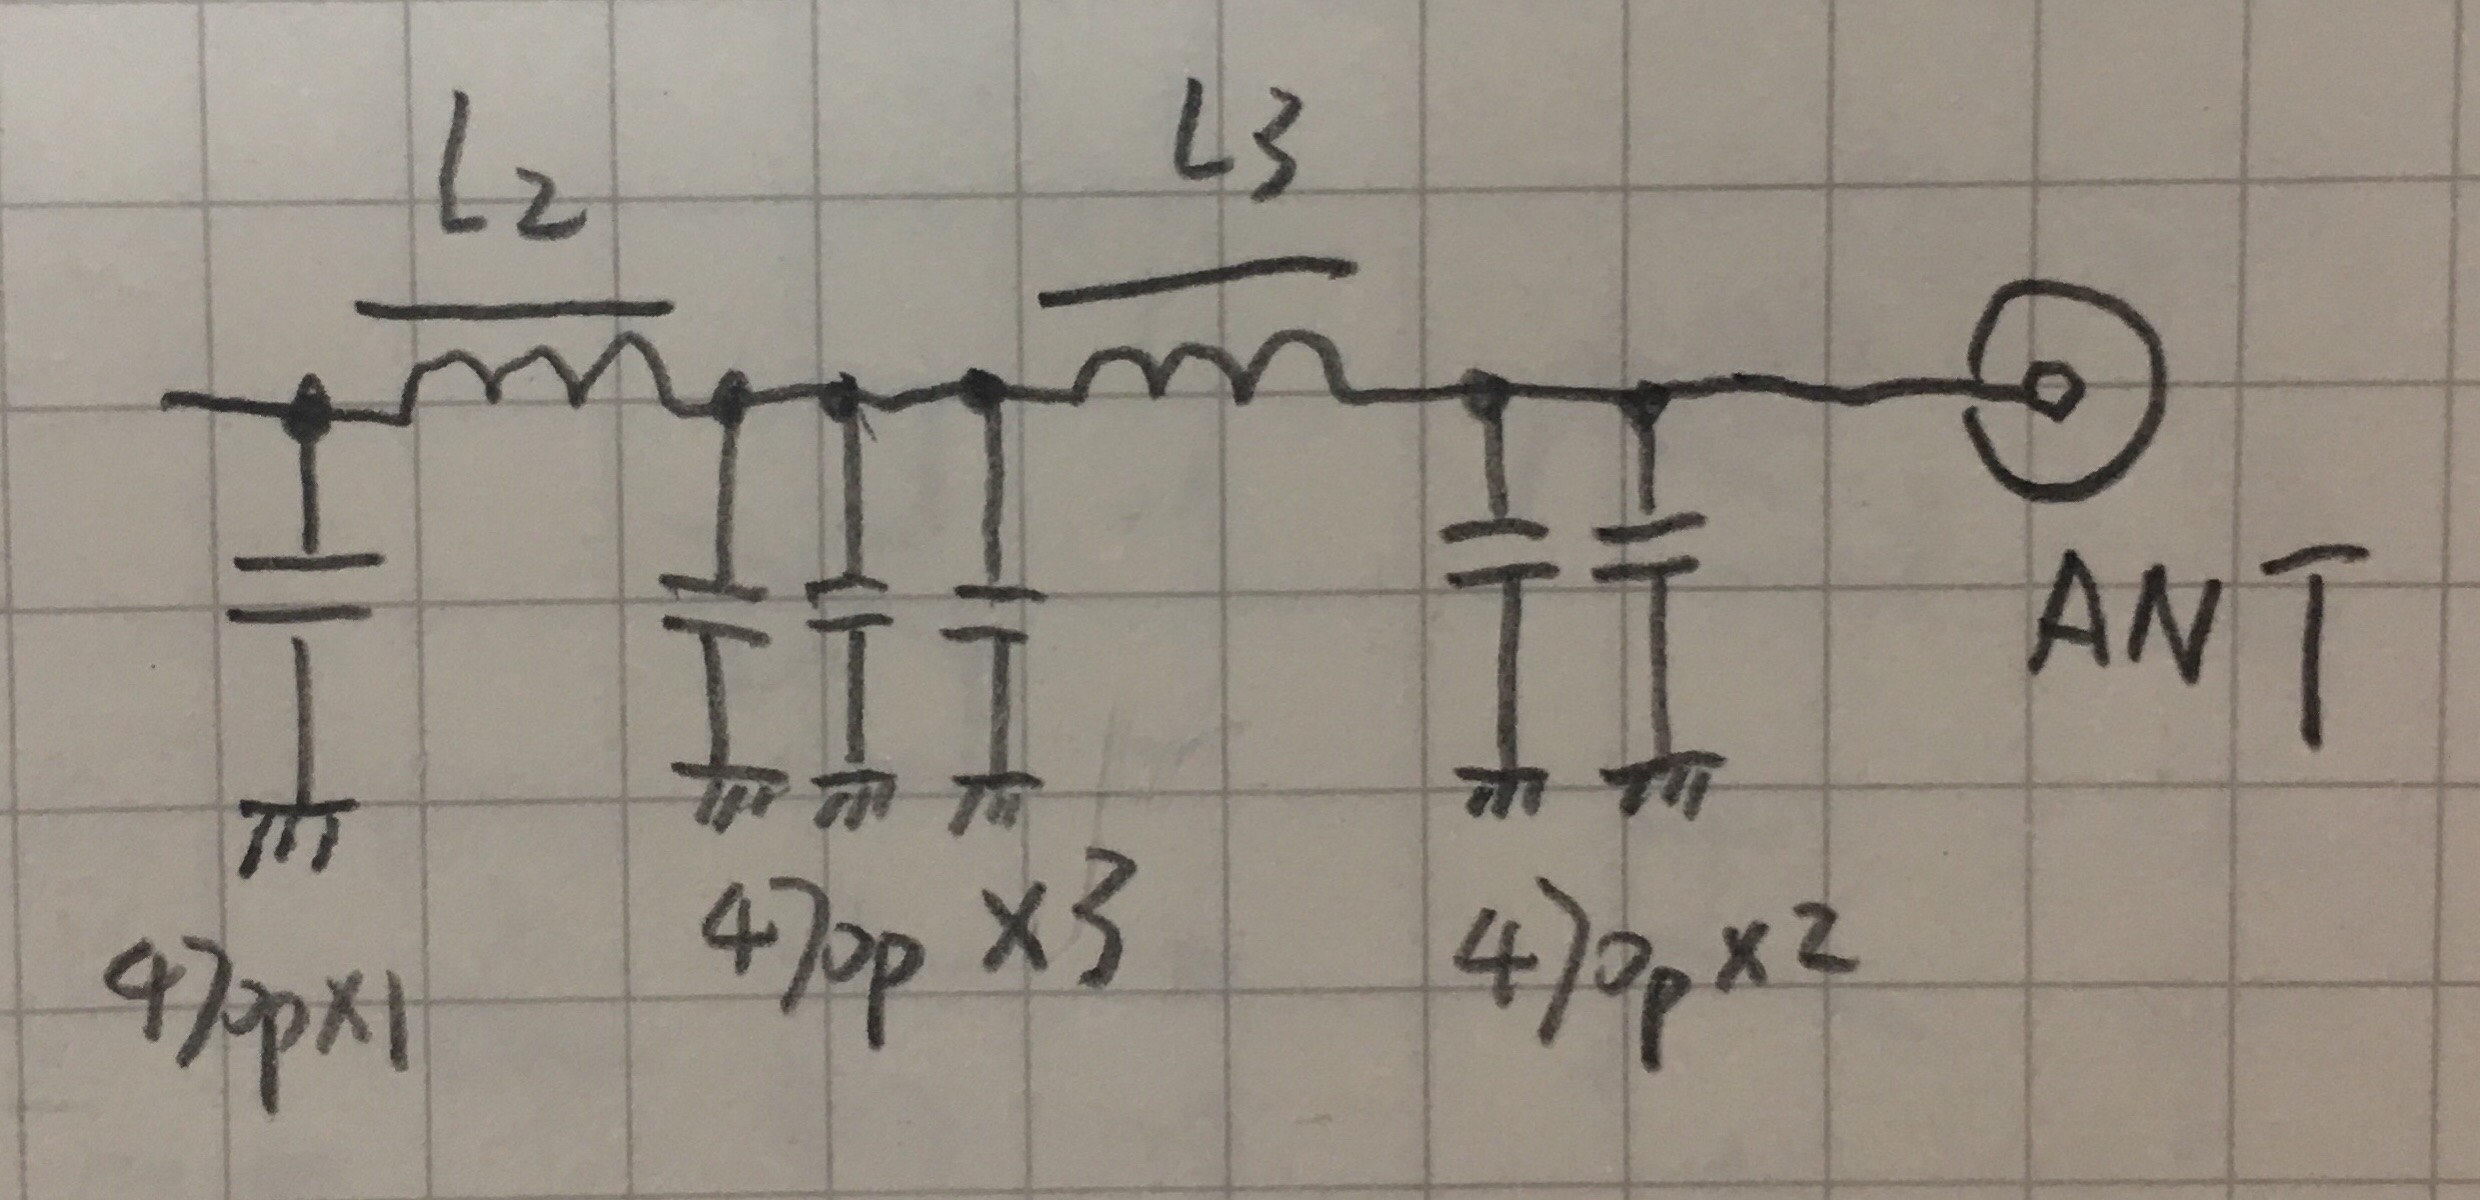 L2
L3
ANT
470p×1
470p ×3
470p×2